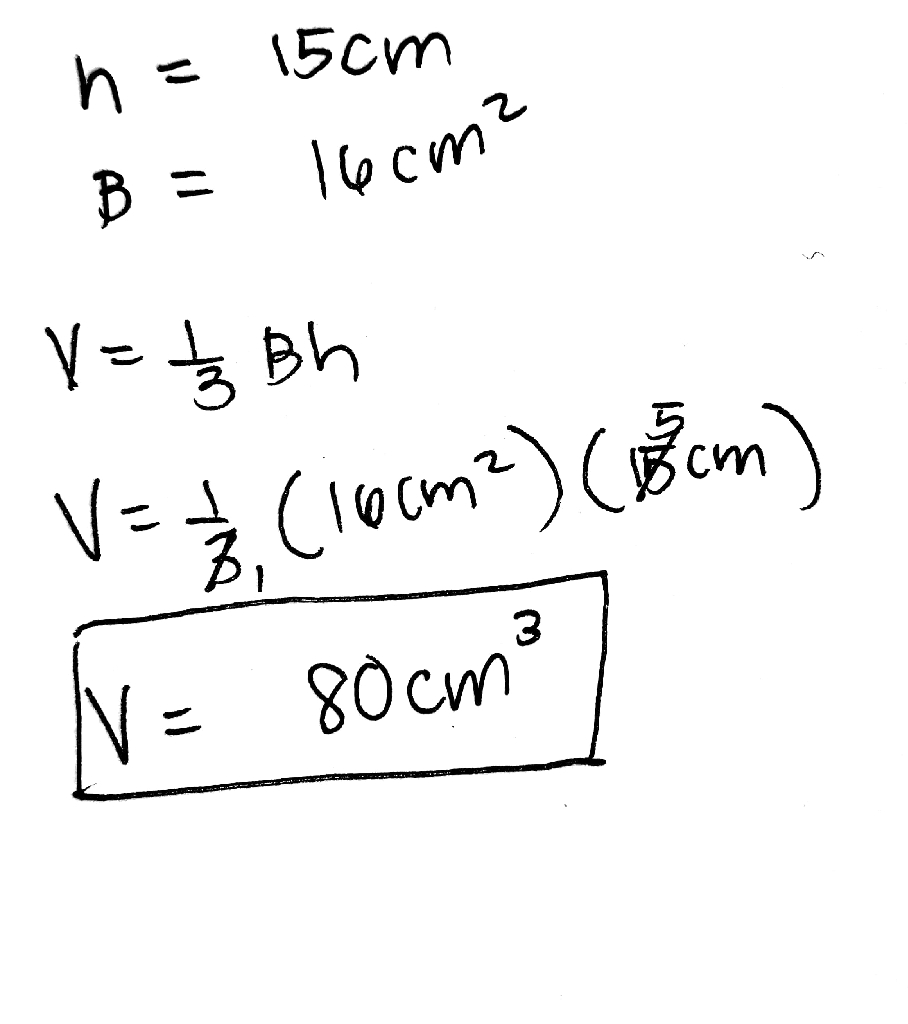 h = 15cm
B = 16cm²
V = 1/3 Bh
V = 1/3 1 (16cm²) (15 5 cm)
V = 80cm³